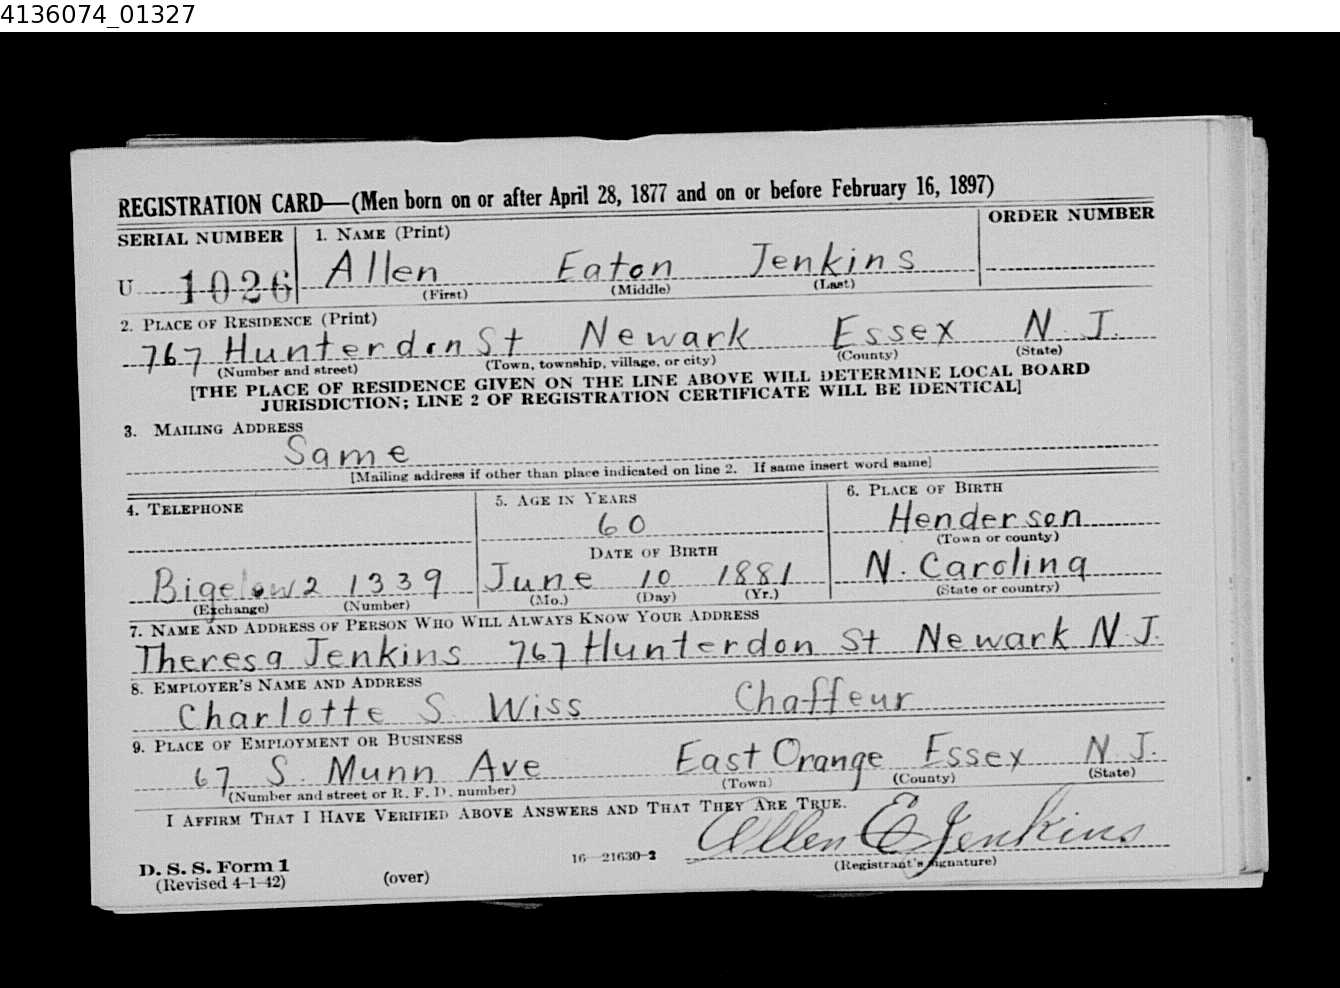 4136074_01327
REGISTRATION CARD—(Men born on or after April 28, 1877 and on or before February 16, 1897)
SERIAL NUMBER 1. NAME (Print) ORDER NUMBER
U 1026 Allen Eaton Jenkins
(First) (Middle) (Last)
2. PLACE OF RESIDENCE (Print)
767 Hunterdon St Newark Essex N. J.
(Number and street) (Town, township, village, or city) (County) (State)
[THE PLACE OF RESIDENCE GIVEN ON THE LINE ABOVE WILL DETERMINE LOCAL BOARD
JURISDICTION; LINE 2 OF REGISTRATION CERTIFICATE WILL BE IDENTICAL]
3. MAILING ADDRESS
Same
[Mailing address if other than place indicated on line 2. If same insert word same]
4. TELEPHONE 5. AGE IN YEARS 6. PLACE OF BIRTH
60 Henderson
(Town or county)
DATE OF BIRTH
Bigelow 2 1339 June 10 1881 N. Carolina
(Exchange) (Number) (Mo.) (Day) (Yr.) (State or country)
7. NAME AND ADDRESS OF PERSON WHO WILL ALWAYS KNOW YOUR ADDRESS
Theresa Jenkins 767 Hunterdon St Newark N.J.
8. EMPLOYER'S NAME AND ADDRESS
Charlotte S. Wiss Chaffeur
9. PLACE OF EMPLOYMENT OR BUSINESS
67 S. Munn Ave East Orange Essex N J.
(Number and street or R. F. D. number) (Town) (County) (State)
I AFFIRM THAT I HAVE VERIFIED ABOVE ANSWERS AND THAT THEY ARE TRUE.
Allen E Jenkins
D. S. S. Form 1 16—21630-2 (Registrant's signature)
(Revised 4-1-42) (over)